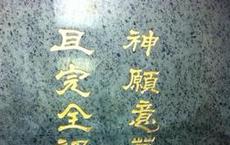 神願意
且完全